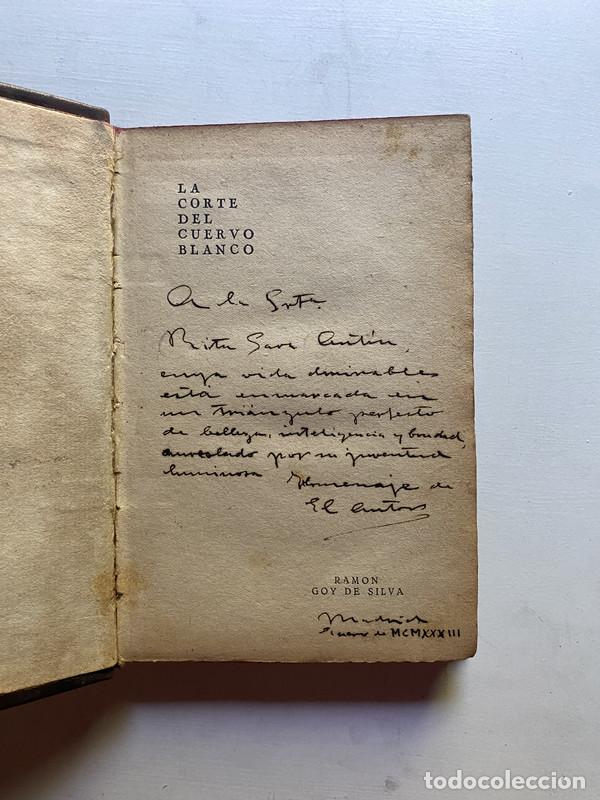 LA
CORTE
DEL
CUERVO
BLANCO
A la Srta.
Rita Antón,
cuya vida
está enmarcada en
un triángulo perfecto
de belleza, inteligencia y bondad,
aureolado por su juventud
luminosa Homenaje de
El autor
RAMON
GOY DE SILVA
Madrid
enero de MCMXXXIII
todocolección